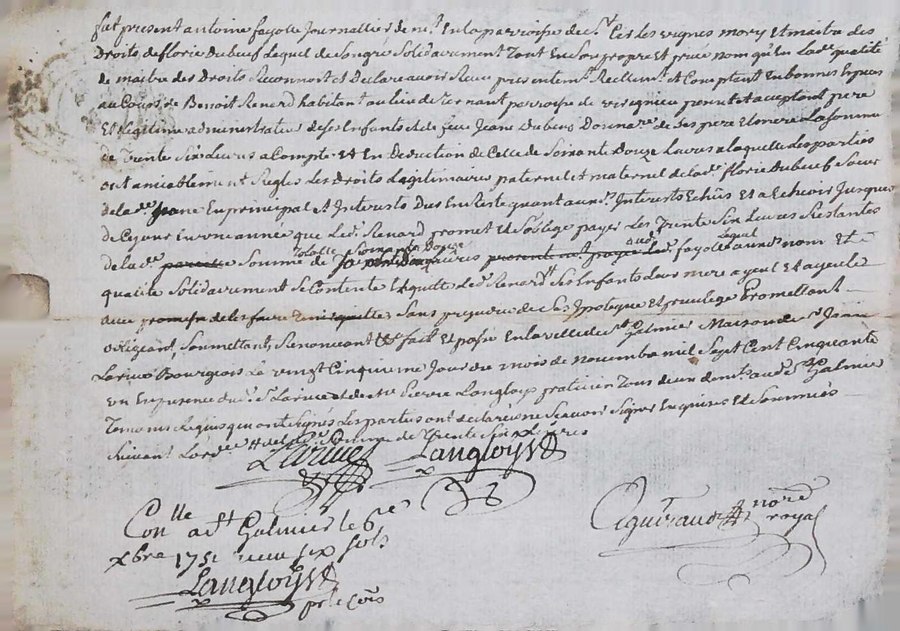 fut present antoine fayolle Journallier dem.t En la parroisse de S.t Cir les vignes mary Et maitre des
Droits de florie Dubeuf Lequel de Son gre Solidairement Tant En Son propre et privé nom qu'En La d.e qualité
de maitre des Droits Reconnoit et Declare avoir Reçu presentem.t Réellem.t et Comptant En bonnes Especes
au Cours de Benoit Renard habitant au lieu de Ternant parroisse de virignieu present et acceptant pere
Et Légitime administrateur de Ses Enfants et de feue Jeane Dubeuf Donnat.re de Ses pere Et mere La Somme
de Trente Six Livres a Compte et En Deduction de Celle de Soixante Douze Livres a laquelle Les parties
ont amiablem.nt Reglés Les Droits Legitimaires paternel et maternel de la d.e florie Dubeuf Soeur
de la d.e Jeane En principal Et Interests Dus En Reste quant aux Interests Echus Et a Echoir Jusques
de Ce jour En une année que Led. Renard promet Et S'oblige payer Les Trente Six Livres Restantes
de la d.e Somme Totalle de Soixante Douze Livres Led. fayolle Lequel aux d. nom Et
qualité Solidairement Se Contente Et quitte Led. Renard Ses Enfants Leur mere ayeul Et ayeule
avec promesse de les faire tenir quittes Sans prejudice de Ses Ipoteque Et privilege Promettant
obligeant, Soumettant, Renonceant &c fait Et passé En la ville de S.t Galmier Maison de S.r Jean
Larive Bourgeois Le vingt Cinquieme Jour du mois de novembre mil Sept Cent Cinquante
un En presence dud. S.r Larive et de M.e Pierre Langlois praticien Tous deux dem.ts aud. S.t Galmier
Temoins Requis qui ont Signés Les parties ont declaré ne Scavoir Signer Enquises Et Sommées
Suivant L'ord.ce de Trente Six Livres
Larive Langloys
Con.lle a S.t Galmier le 6.e
xbre 1751 reçu six sols
Langloys
p.r le Cois
nore
royal